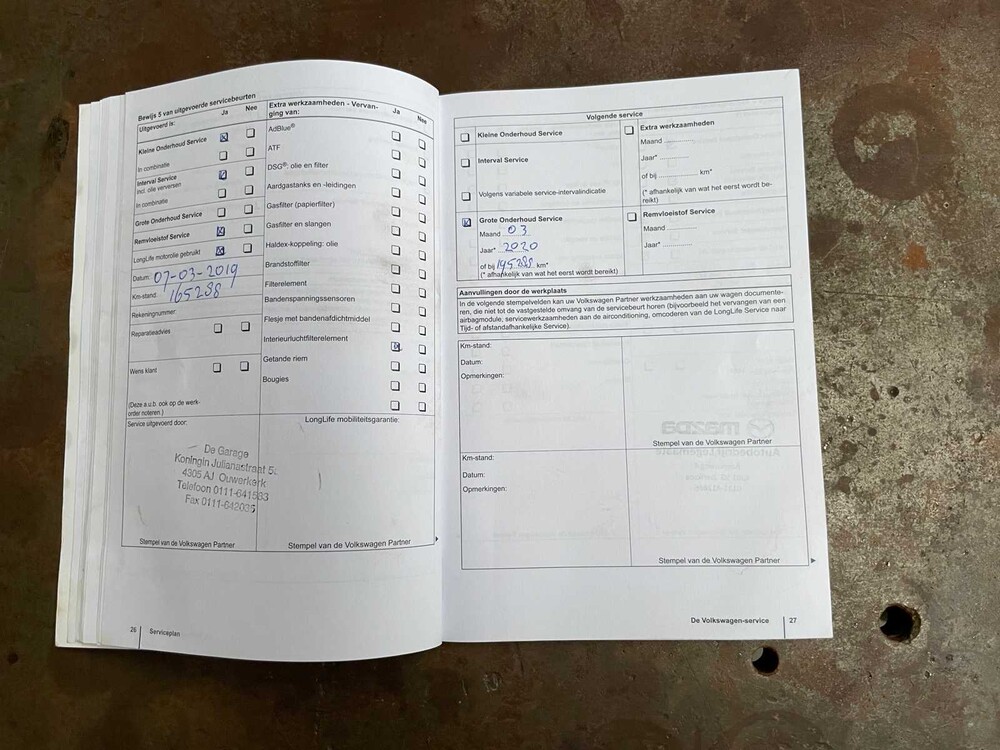 Bewijs 5 van uitgevoerde servicebeurten
Uitgevoerd is:
Ja
Nee
Kleine Onderhoud Service
In combinatie
Interval Service
incl. olie verversen
In combinatie
Grote Onderhoud Service
Remvloeistof Service
LongLife motorolie gebruikt
Datum: 07-03-2019
Km-stand: 165288
Rekeningnummer
Reparatieadvies
Wens klant
(Deze a.u.b. ook op de werk-
order noteren.)
Extra werkzaamheden - Vervan-
ging van:
Ja
Nee
AdBlue®
ATF
DSG®: olie en filter
Aardgastanks en -leidingen
Gasfilter (papierfilter)
Gasfilter en slangen
Haldex-koppeling: olie
Brandstoffilter
Filterelement
Bandenspanningssensoren
Flesje met bandenafdichtmiddel
Interieurluchtfilterelement
Getande riem
Bougies
Service uitgevoerd door:
De Garage
Koningin Julianastraat
4305 AJ Ouwerkerk
Telefoon 0111-641583
Fax 0111-642035
Stempel van de Volkswagen Partner
LongLife mobiliteitsgarantie:
Stempel van de Volkswagen Partner
26 Serviceplan
Volgende service
Kleine Onderhoud Service
Interval Service
Volgens variabele service-intervalindicatie
Grote Onderhoud Service
Maand 03
Jaar* 2020
of bij 195288 km*
(* afhankelijk van wat het eerst wordt bereikt)
Extra werkzaamheden
Maand ..............
Jaar* ..............
of bij .............. km*
(* afhankelijk van wat het eerst wordt be-
reikt)
Remvloeistof Service
Maand ..............
Jaar ..............
Aanvullingen door de werkplaats
In de volgende stempelvelden kan uw Volkswagen Partner werkzaamheden aan uw wagen documente-
ren, die niet tot de vastgestelde omvang van de servicebeurt horen (bijvoorbeeld het vervangen van een
airbagmodule, servicewerkzaamheden aan de airconditioning, omcoderen van de LongLife Service naar
Tijd- of afstandafhankelijke Service).
Km-stand:
Datum:
Opmerkingen:
Stempel van de Volkswagen Partner
Km-stand:
Datum:
Opmerkingen:
Stempel van de Volkswagen Partner
De Volkswagen-service 27